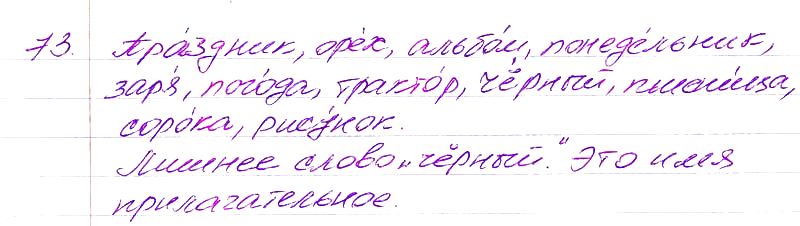 73. Пра́здник, оре́х, альбо́м, понеде́льник,
заря́, пого́да, тракто́р, чёрный, пшени́ца,
соро́ка, рису́нок.
Лишнее слово „чёрный.“ Это имя
прилагательное.